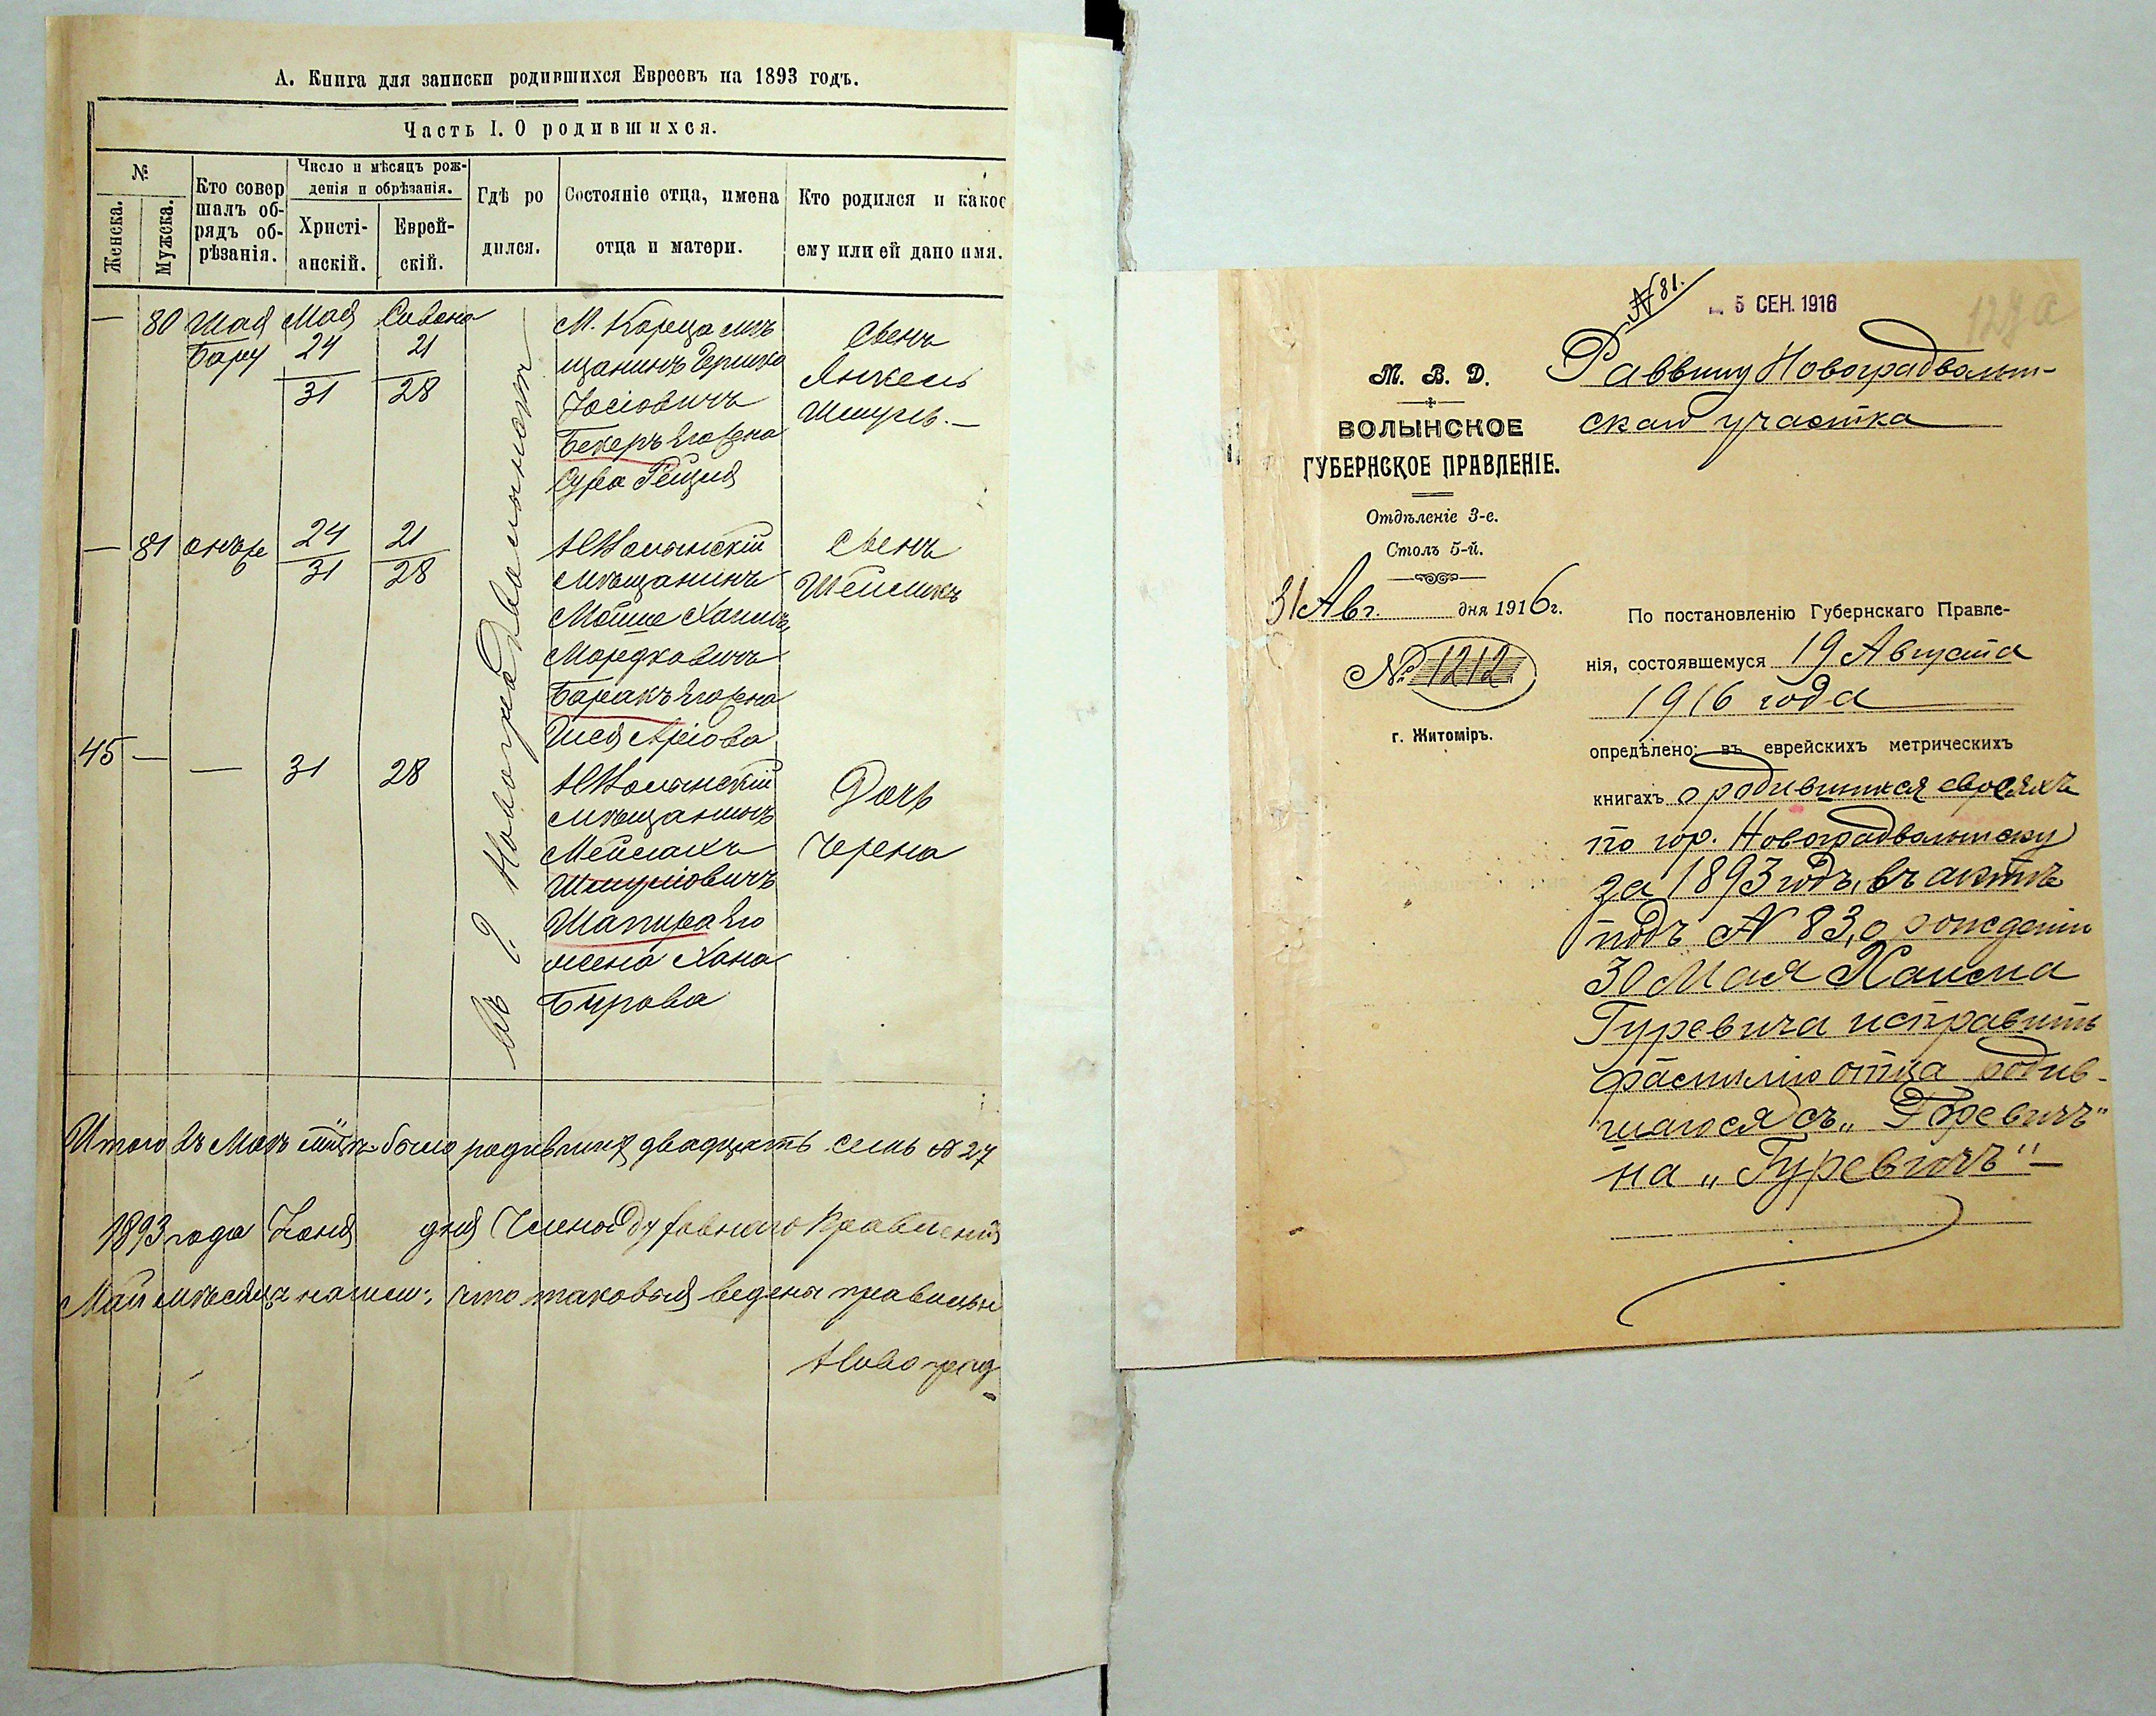 А. Книга для записки родившихся Евреевъ на 1893 годъ.
Часть I. О родившихся.
№
Женска.
Мужска.
Кто совер
шалъ об-
рядъ об-
рѣзанія.
Число и мѣсяцъ рож-
денія и обрѣзанія.
Христі-
анскій.
Еврей-
скій.
Гдѣ ро
дился.
Состояніе отца, имена
отца и матери.
Кто родился и какое
ему или ей дано имя.
— 80 Шая
Бару
Мая
24
31
Сивана
21
28
Въ г. Новоградволынскѣ
М. Кореца мѣ
щанинъ Гершко
Іосіовичъ
Бекеръ его жена
Сура Рейзия
Сынъ
Янкель
Шмуль. —
— 81
24
31
21
28
НВолынскій
мѣщанинъ
Мойше Хаимъ
Мордковичъ
Баракъ его жена
Аріова
Сынъ
45 — — 31 28
НВолынскій
мѣщанинъ
Мейлахъ
Шмуліовичъ
Шапира его
жена Хана
Бурова
Дочь
Черена
Итого въ Маѣ было родившихся двадцать семь № 27
1893 года Іюня дня Члены Духовнаго Правленія
Май мѣсяцъ нашли, что таковыя ведены правильн
Новоград
№ 81.
5 СЕН. 1916
127а
М. В. Д.
ВОЛЫНСКОЕ
ГУБЕРНСКОЕ ПРАВЛЕНІЕ.
Отдѣленіе 3-е.
Столъ 5-й.
31 Авг. дня 1916 г.
№ 1212
г. Житоміръ.
Раввину Новоградволын-
скаго участка
По постановленію Губернскаго Правле-
нія, состоявшемуся 19 Августа
1916 года
опредѣлено: въ еврейскихъ метрическихъ
книгахъ о родившихся евреяхъ
по гор. Новоградволынску
за 1893 годъ, въ актѣ
подъ № 83, о рожденіи
30 Мая Хаима
Гуревича исправить
фамилію отца родив-
шагося съ „Горевичъ"
на „Гуревичъ" —